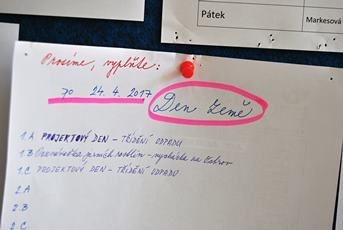 Pátek
Markesová
Prosíme, vyplňte:
po 24. 4. 2017
Den Země
1.A PROJEKTOVÝ DEN – TŘÍDĚNÍ ODPADU
1.B prvních rostlin –
1.C PROJEKTOVÝ DEN – TŘÍDĚNÍ ODPADU
2.A
2.B
2.C